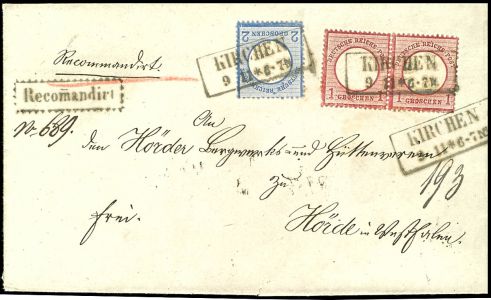 Recommandirt.
Recomandirt
No 639.
2
GROSCHEN
DEUTSCHE REICHS-POST
1 GROSCHEN 1
DEUTSCHE REICHS-POST
1 GROSCHEN 1
KIRCHEN
9 11 * 6-7N
KIRCHEN
9 11 * 6-7N
KIRCHEN
9 11 * 6-7N
An
den Hörder Bergwerks und Hüttenverein
zu
193
frei.
Hörde in Westfalen.